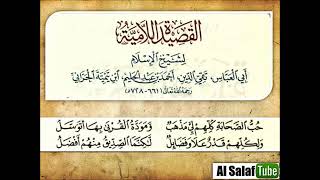 القصيدة اللامية
لِشَيْخِ الْإِسْلَامِ
أبي العباس، تقي الدين، أحمد بن عبد الحليم، ابن تيمية الحراني
رحمه الله تعالى (٦٦١-٧٢٨هـ)
حُبُّ الصَّحَابَةِ كُلِّهِمْ لِي مَذْهَبٌ وَمَوَدَّةُ الْقُرْبَى بِهَا أَتَوَسَّلُ
وَلِكُلِّهِمْ قَدْرٌ عَلَا وَفَضَائِلُ لَكِنَّمَا الصِّدِّيقُ مِنْهُمْ أَفْضَلُ
Al Salaf Tube